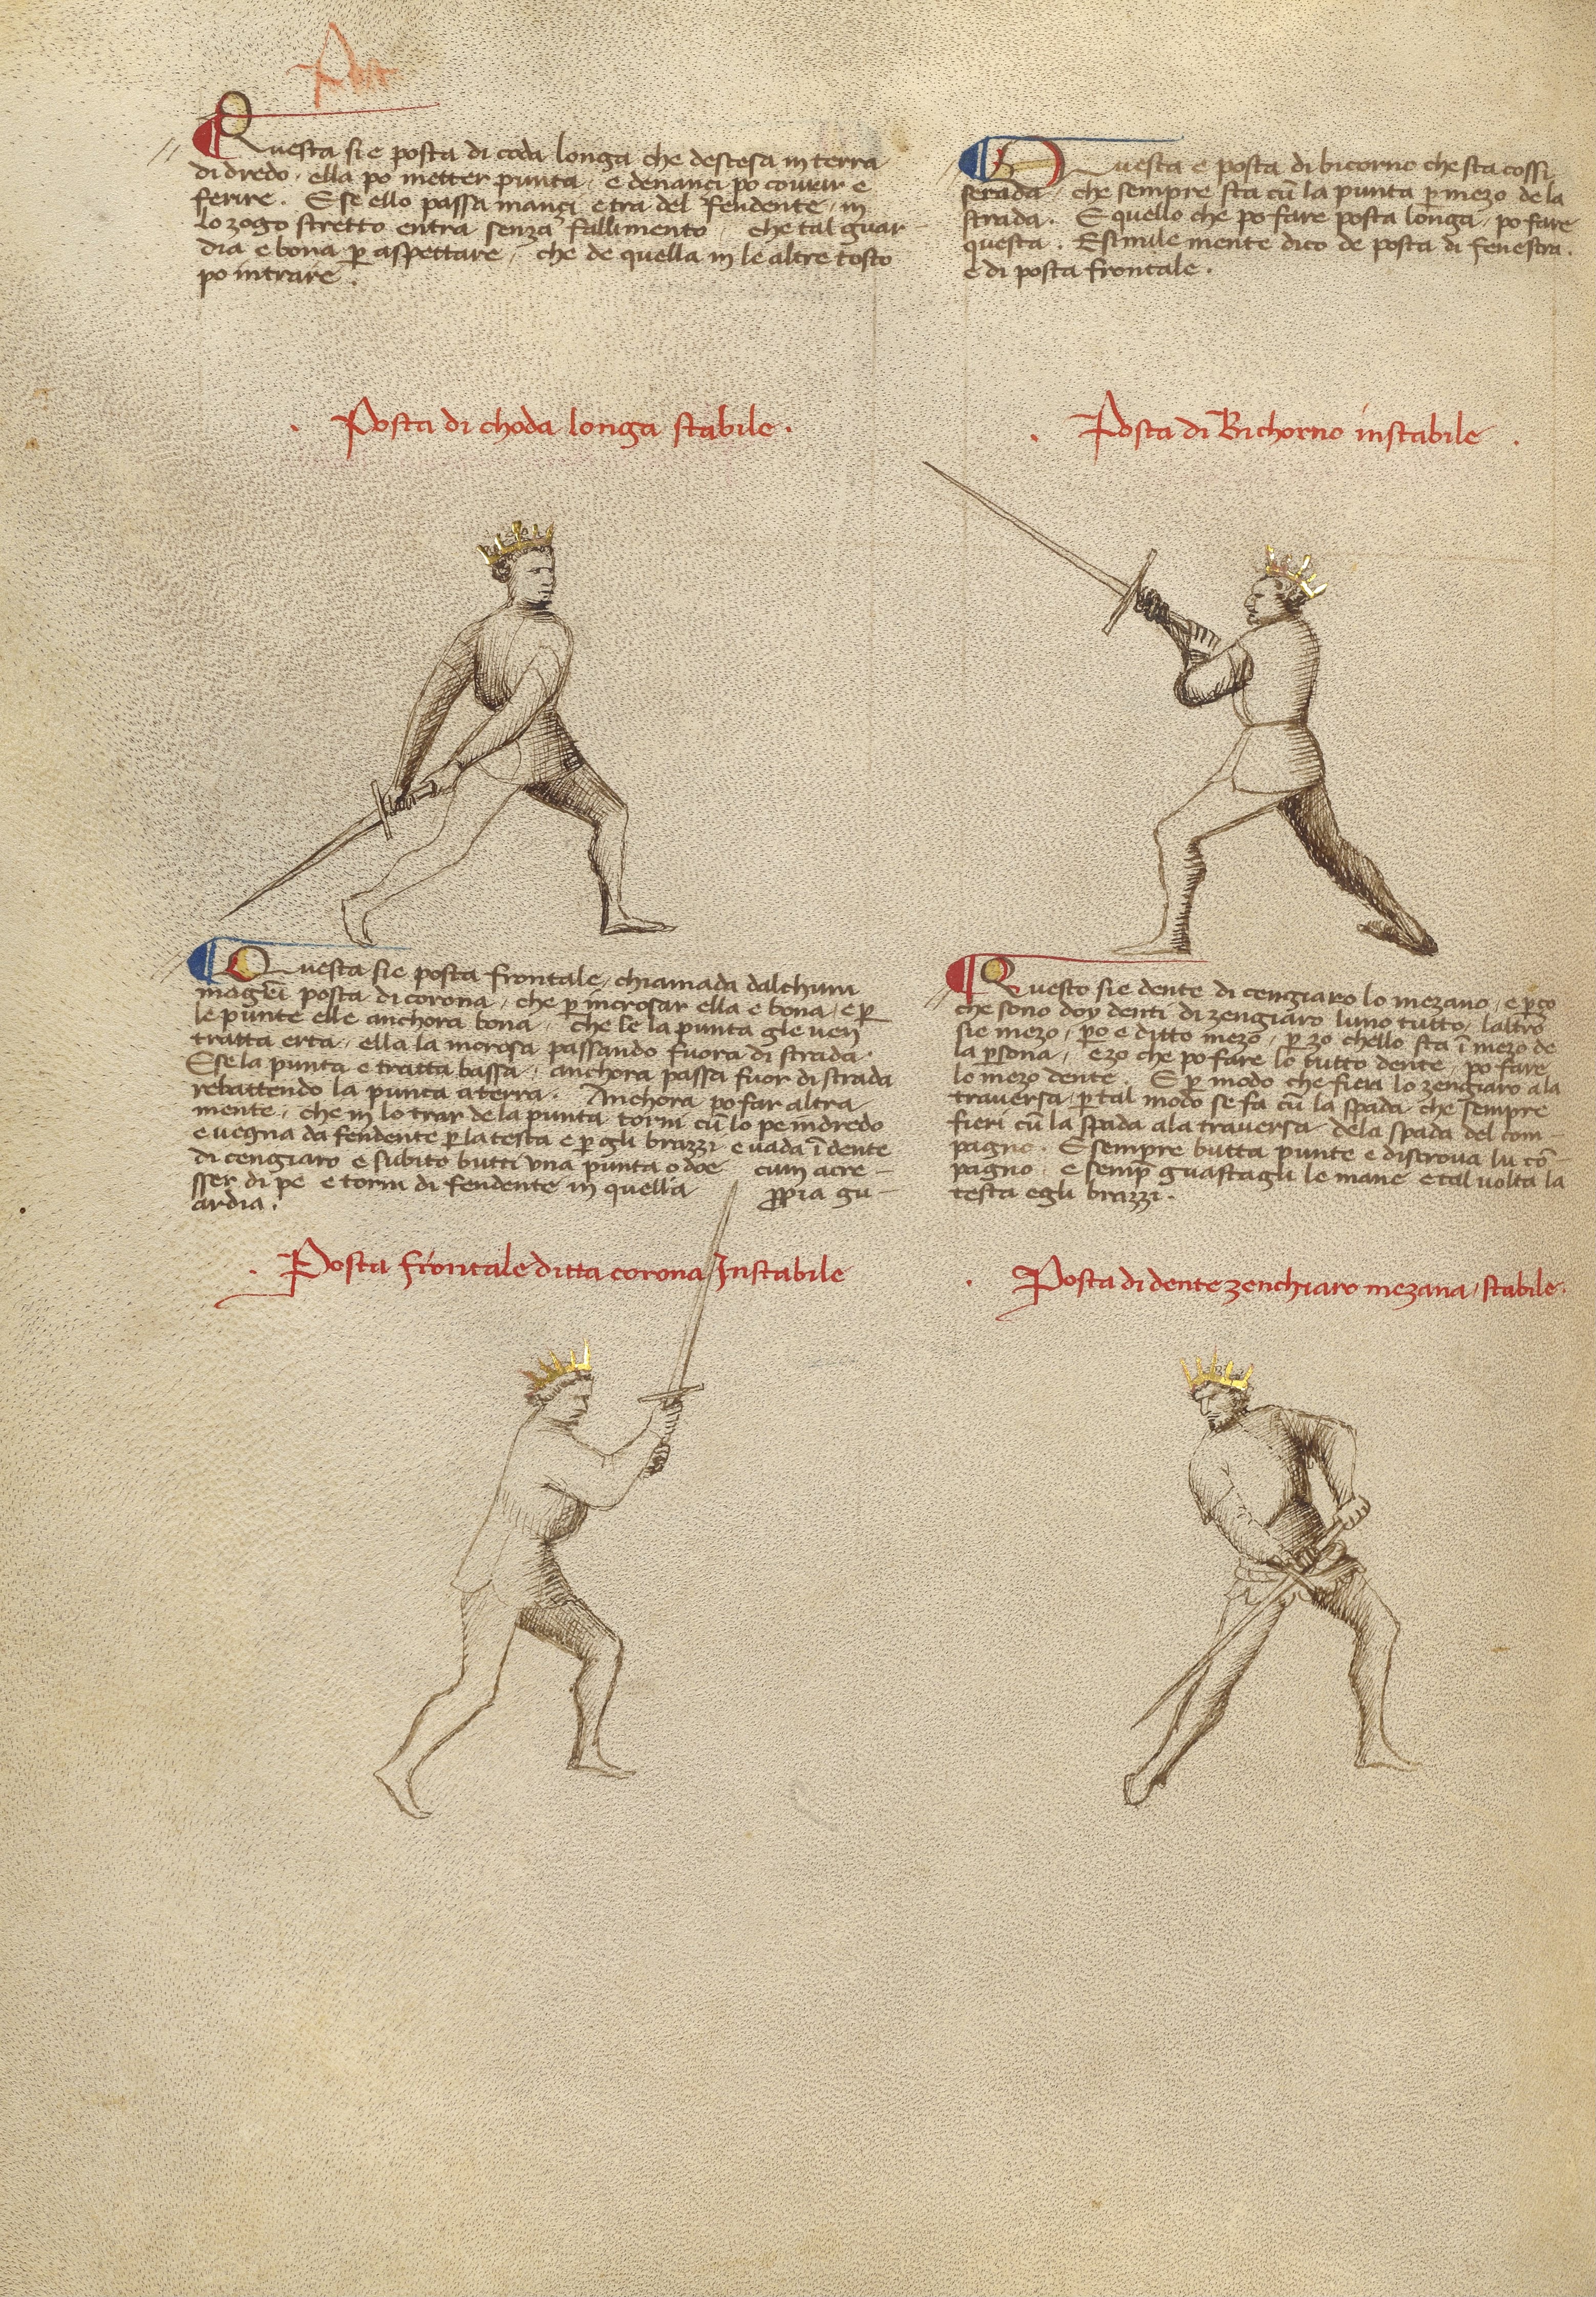 Questa si e posta di coda longa che destesa in terra
di dredo, ella po metter punta, e denanci po covrar e
ferire. E se ello passa inanci e tra del fendente, in
lo zogo stretto entra senza fallimento, che tal guar-
dia e bona p̱ aspettare, che de quella in le altre tosto
po intrare.
. Posta di choda longa stabile .
Questa e posta di bicorno che sta cossi
serada che sempre sta cū la punta p̱ mezo de la
strada. E quello che po fare posta longa, po fare
questa. E simile mente dico de posta di fenestra.
e di posta frontale.
. Posta di Bichorno instabile .
Questa si e posta frontale, chiamada d'alchun
magr̄i posta di corona, che p̱ incrosar ella e bona, e p̱
le punte elle anchora bona, che se la punta gle ven
tratta erta, ella la incrosa passando fuora di strada.
E se la punta e tratta bassa, anchora passa fuor di strada
rebattendo la punta a terra. Anchora po far altra
mente, che in lo trar de la punta torni cū lo pe indredo
e vegna da fendente p̱ la testa e p̱ gli brazzi e vada ī dente
di cengiaro e subito butti una punta o doe cum acre-
sser di pe e torni di fendente in quella ꝓpia gu-
ardia.
. Posta frontale ditta corona Instabile
Questo si e dente di cengiaro lo mezano, e p̱ço
che sono doy denti di zengiaro luno tutto, laltro
si e mezo, p̱o e ditto mezo, p̱zo chello sta ī mezo de
la p̱sona, ezo che po fare lo tutto dente, po fare
lo mezo dente. E p̱ modo che fieri lo zengiaro a la
traversa, p̱ tal modo se fa cū la spada che sempre
fieri cū la spada ala traversa dela spada del com-
pagno. E sempre butta punte e discrova lu cō-
pagno, e semp̱ guastagli le mane e tal volta la
testa e gli brazzi.
. Posta di dente zenchiaro mezana, stabile.